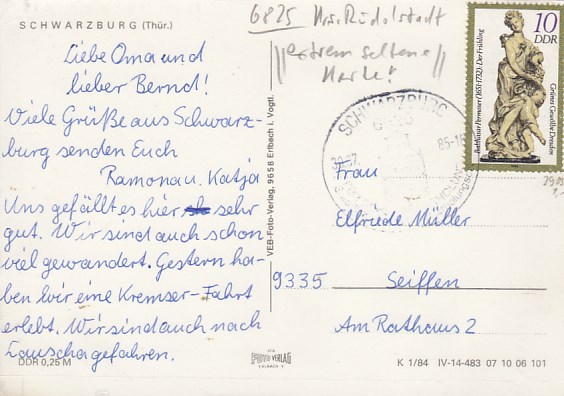 SCHWARZBURG (Thür.)
6825 Krs. Rudolstadt
"extrem seltene
Marke!"
Liebe Oma und
lieber Bernd!
Viele Grüße aus Schwarz-
burg senden Euch
Ramona u. Katja
Uns gefällt es hier sehr
gut. Wir sind auch schon
viel gewandert. Gestern ha-
ben wir eine Kremser-Fahrt
erlebt. Wir sind auch nach
Lauscha gefahren.
DDR 0,25 M
VEB-Foto-Verlag, 9658 Erlbach i. Vogtl.
FOTO VERLAG
ERLBACH V.
10
DDR
Balthasar Permoser (1651-1732): Der Frühling
Grünes Gewölbe Dresden
SCHWARZBURG
6825
85-16
Frau
Elfriede Müller
9335 Seiffen
Am Rathaus 2
K 1/84 IV-14-483 07 10 06 101